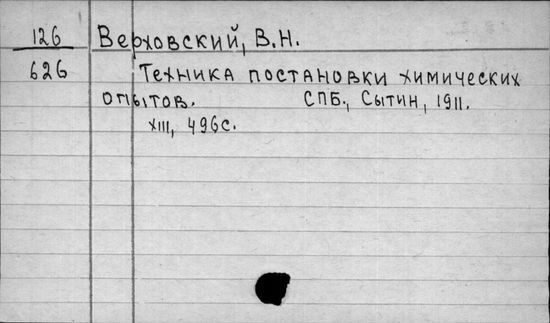 126 Верховский, В.Н.
626 Техника постановки химических
опытов. СПБ., Сытин, 1911.
XIII, 496с.